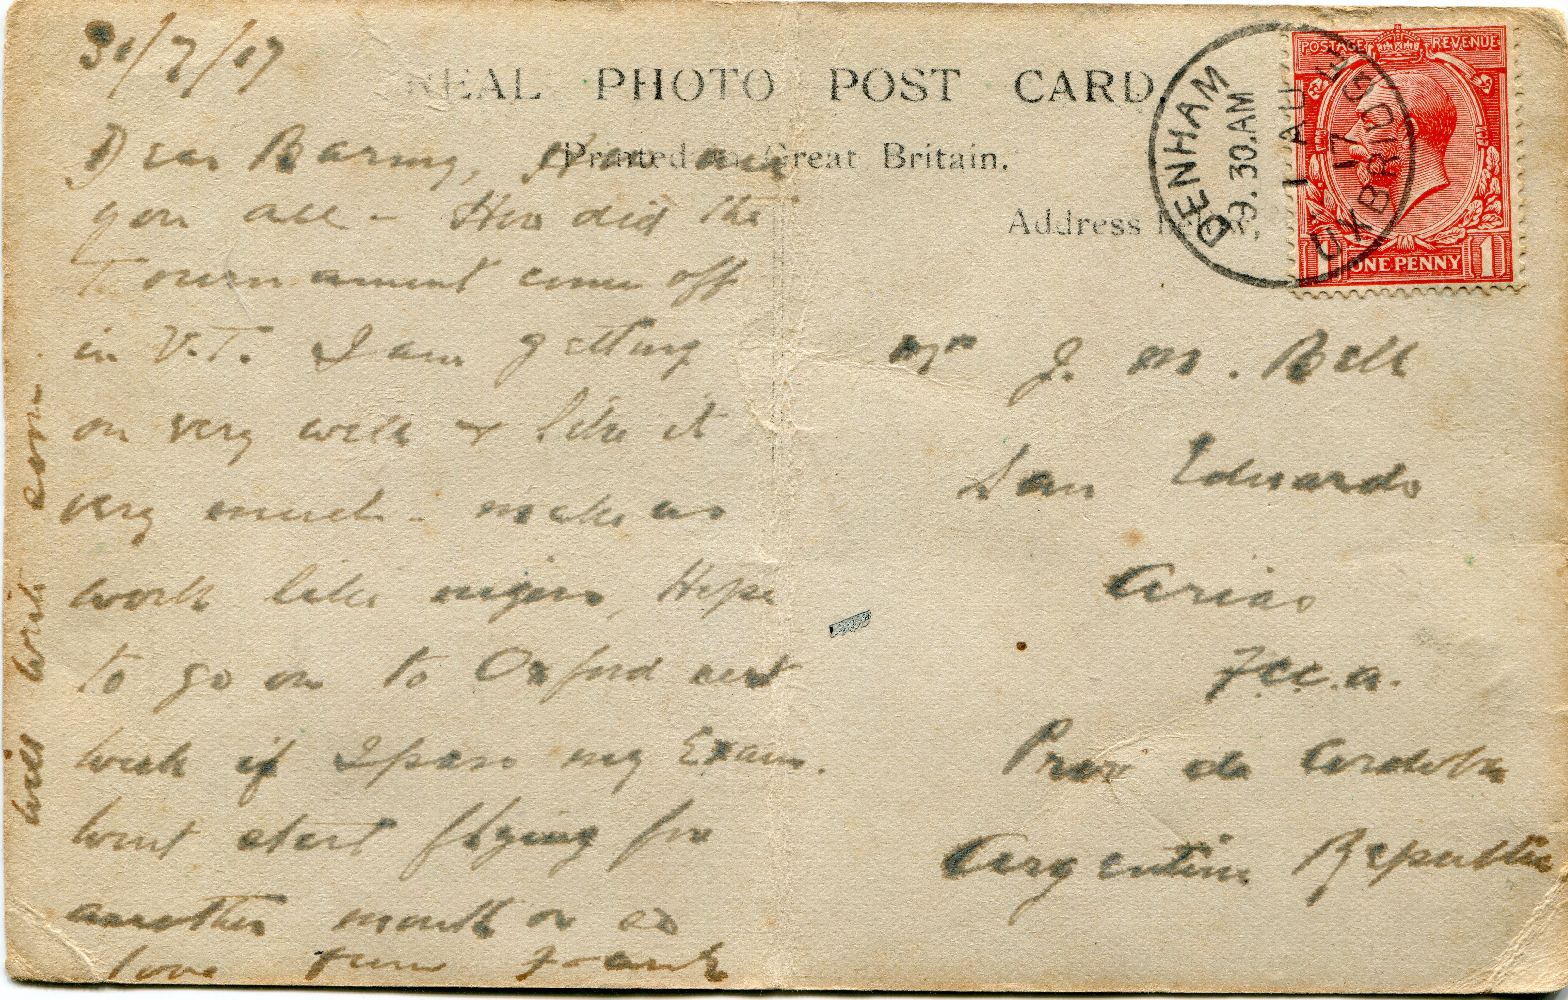 31/7/17
REAL PHOTO POST CARD
Printed in Great Britain.
Address
DENHAM
9.30.AM
1 AU
17
UXBRIDGE
POSTAGE REVENUE
1 ONE PENNY 1
Dear Baring, How are
you all - How did the
Tournament come off
in V.T. I am getting
on very well & like it
very much - makes us
work like nigers, Hope
to go on to Oxford next
week if I pass my Exam.
wont start flying for
another month or so
love from Frank
will write soon
Mrs J. M. Bell
San Eduardo
Arias
F.C.C.A.
Prov de Cordoba
Argentine Republic